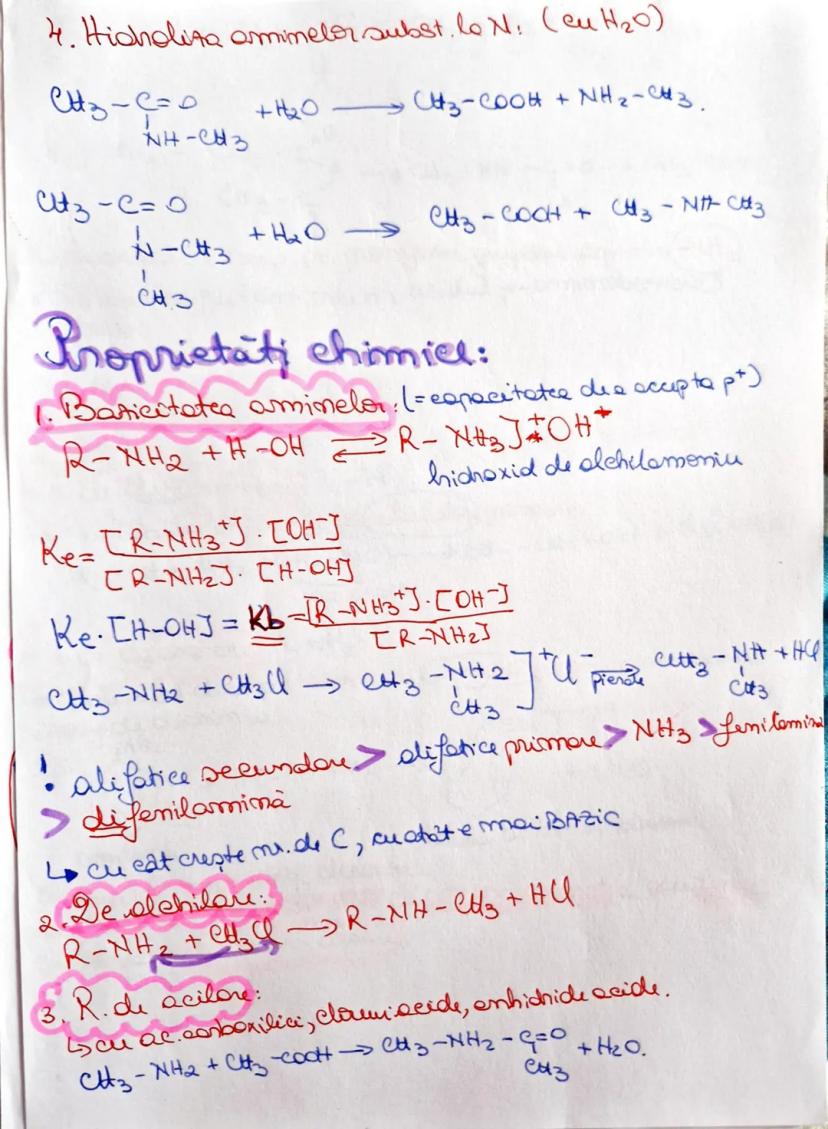 4. Hidroliza aminelor subst. la N: (cu H2O)
CH3 – C = O
+ H2O → CH3-COOH + NH2-CH3.
NH - CH3
CH3 - C = O
+ H2O → CH3 - COOH + CH3 - NH-CH3
N - CH3
CH3
Proprietăți chimice:
1. Bazicitatea aminelor: (= capacitatea de a accepta p+)
R - NH2 + H-OH ⇌ R - NH3]+ OH+
hidroxid de alchilamoniu
Ke = [R-NH3+] · [OH-]
[R-NH2] · [H-OH]
Ke · [H-OH] = Kb = [R-NH3+] · [OH-]
[R-NH2]
CH3-NH2 + CH3Cl → CH3 - NH2 ]+ Cl- pierde → CH3 - NH + HCl
CH3 CH3
! alifatice secundare > alifatice primare > NH3 > fenilamina
> difenilamină
↳ cu cât crește nr. de C, cu atât e mai BAZIC
2. De alchilare:
R-NH2 + CH3Cl → R-NH-CH3 + HCl
3. R. de acilare:
↳ cu ac. carboxilici, cloruri acide, anhidride acide.
CH3-NH2 + CH3-COOH → CH3-NH2 - C=O + H2O.
CH3